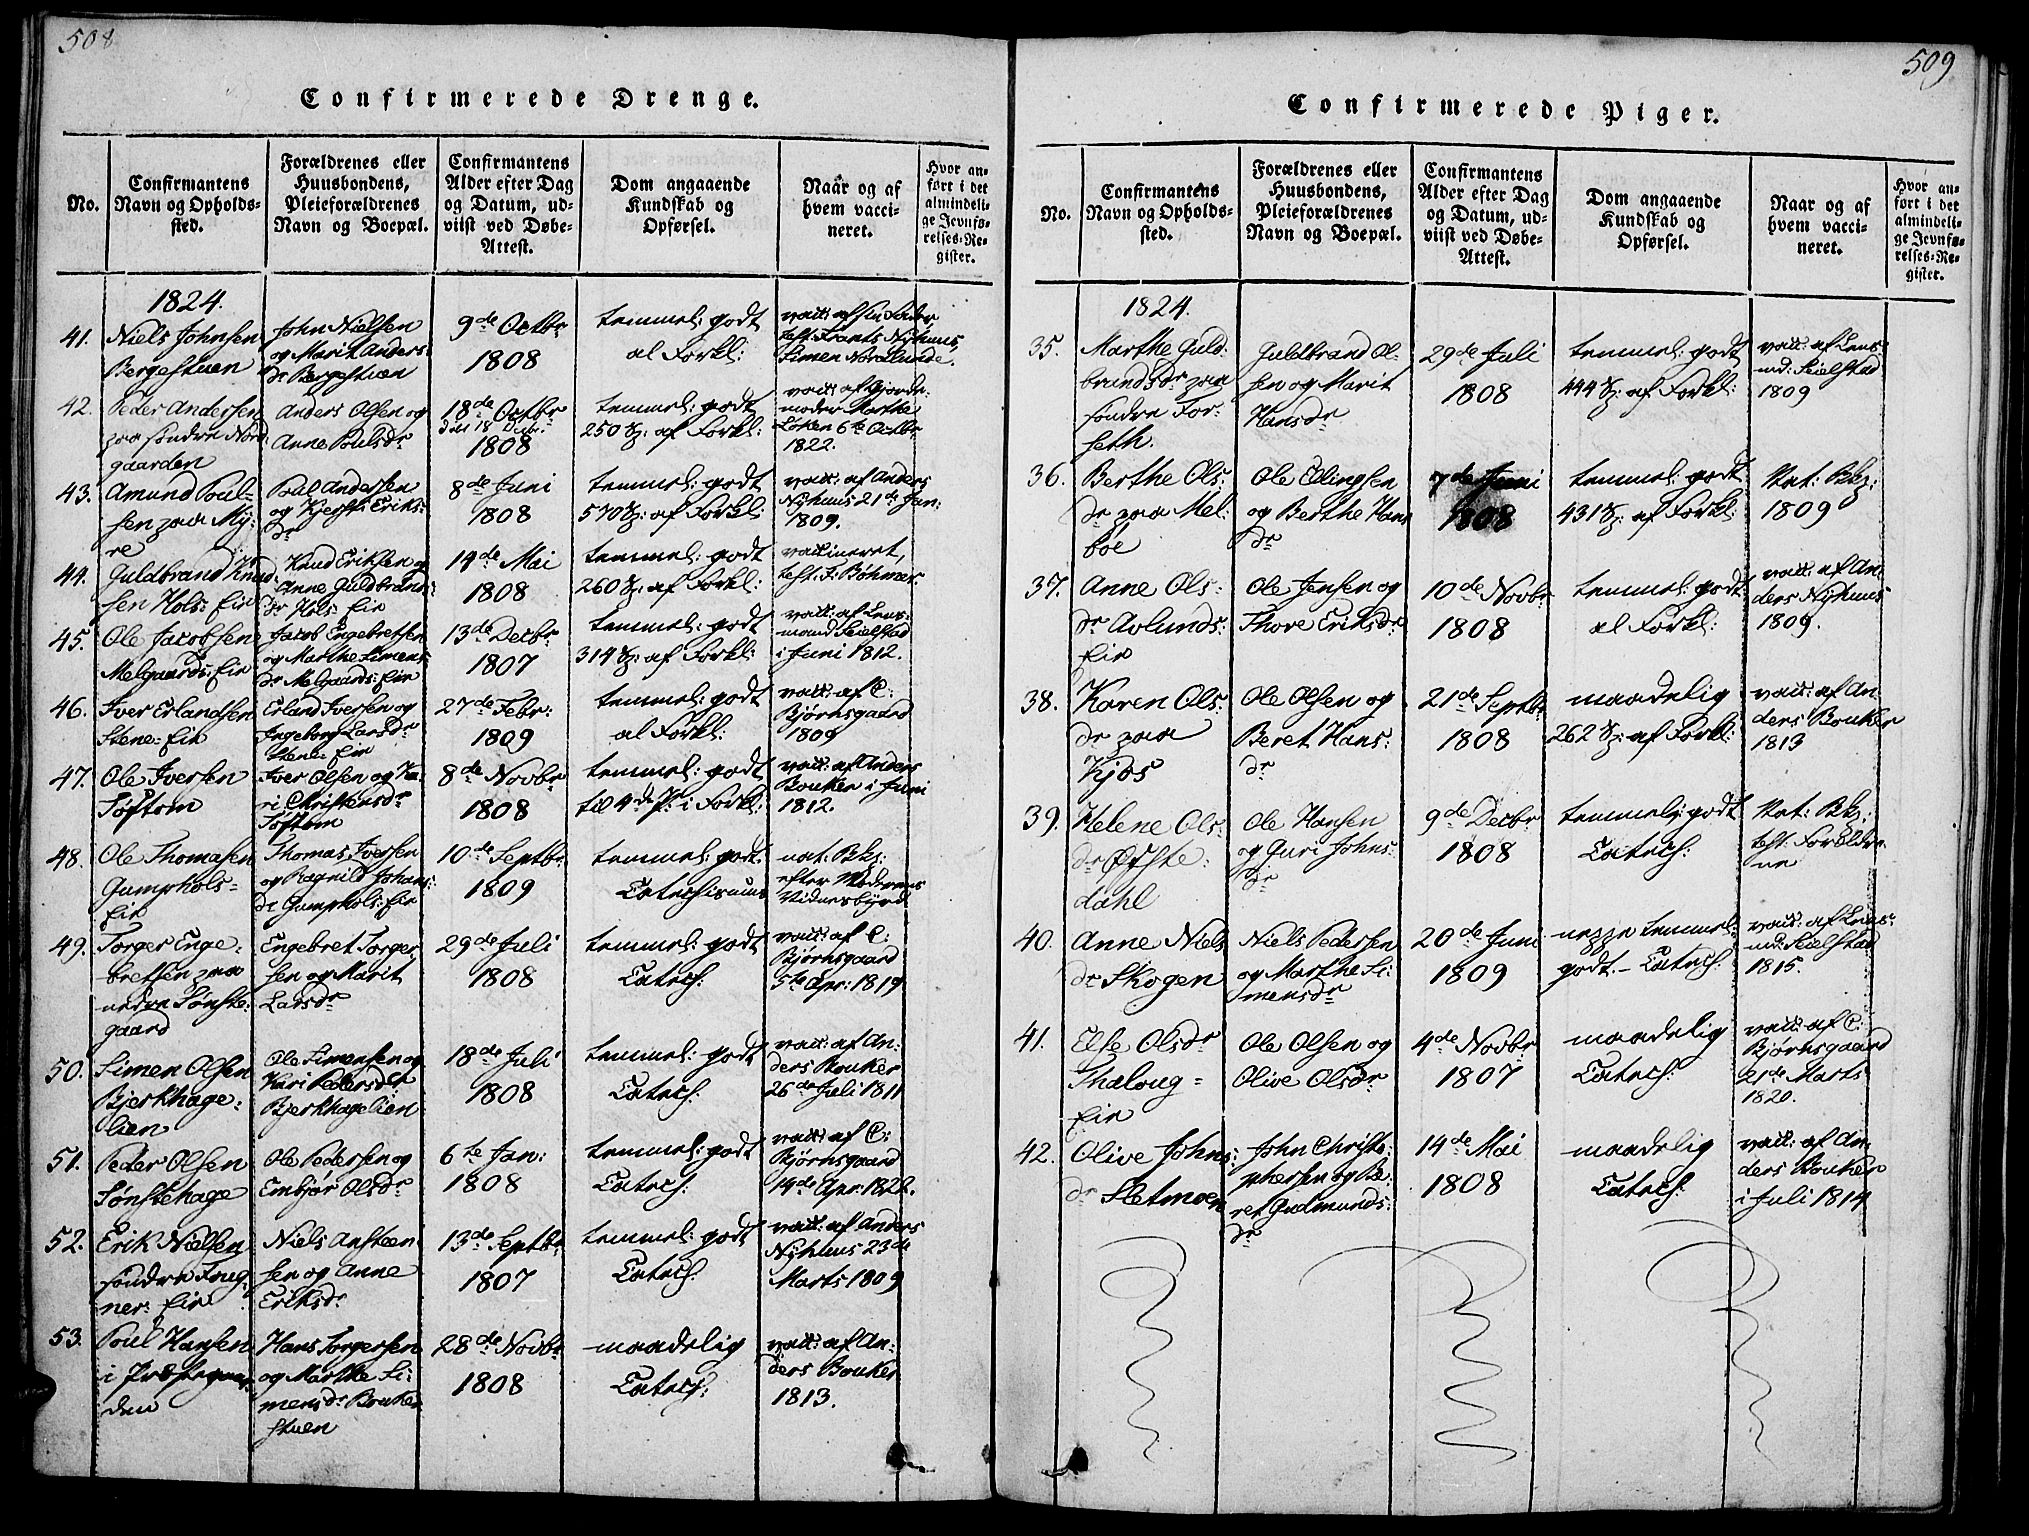 508
Confirmerede Drenge.
No.
Confirmantens
Navn og Opholds-
sted.
Forældrenes eller
Huusbondens,
Pleieforældrenes
Navn og Boepæl.
Confirmantens
Alder efter Dag
og Datum, ud-
viist ved Døbe-
Attest.
Dom angaaende
Kundskab og
Opførsel.
Naar og af
hvem vacci-
neret.
Hvor an-
ført i det
almindeli-
ge Jevnfø-
relses-Re-
gister.
1824.
41.
Niels Johnsen
Bergestuen
John Nielsen
og Marit Anders:
dr Bergestuen
9de Octbr
1808
temmel: godt
al Forkl:
vacc: af sin Fader
test: Frants Nyhuus,
Simen Nordlunde.
42.
Peder Andersen
paa søndre Nord
gaarden
Anders Olsen og
Anne Poulsdr
18de Octbr
1808
temmel: godt
250 Sp: af Forkl:
vacc: af Gjorde-
moder Marthe
Løken 6te Octbr
1822.
43.
Amund Poul-
sen paa My:
re
Poul Andersen
og Kjersti Eriks:
dr
8de Juni
1808
temmel: godt
570 Sp: af Forkl:
vacc: af Anders
Nyhuus 21de Jan:
1809.
44.
Guldbrand Knud
sen Hols: Eie
Knud Eriksen og
Anne Guldbrands:
dr Hols: Eie
14de Mai
1808
temmel: godt
260 Sp: af Forkl:
vaccineret,
test: J: Bøhmer
45.
Ole Jacobsen
Melgaards: Eie
Jacob Engebretsen
og Marthe Simens:
dr Melgaards: Eie
13de Decbr
1807
temmel: godt
314 Sp: af Forkl:
vacc: af Lens-
mand Seielstad
i Juni 1812.
46.
Iver Erlandsen
Stene: Eie
Erland Iversen og
Ingeborg Larsdr
Stene: Eie
27de Febr:
1809
temmel: godt
al Forkl:
vacc: af C:
Bjørnsgaard
1809
47.
Ole Iversen
Toftom
Iver Olsen og Ka-
ri Christensdr
Toftom
8de Novbr
1808
temmel: godt
til 4de P: i Forkl:
vacc: af Anders
Bouker i Juni
1812.
48.
Ole Thomasen
Gumphols-
Eie
Thomas Iversen
og Ragnild Johans:
dr Gumphols: Eie
10de Septbr
1809
temmel: godt
Catechismus
nat: Bkp:
efter Moderens
Vidnesbyrd
49.
Torger Enge-
bretsen paa
nedre Sønste-
gaard
Engebret Torger
sen og Marit
Larsdr
29de Juli
1808
temmel: godt
Catech:
vacc: af C:
Bjørnsgaard
5te Apr: 1819
50.
Simen Olsen
Bjerkhage-
lien
Ole Simensen og
Kari Pedersdr
Bjerkhagelien
18de Juli
1808
temmel: godt
Catech:
vacc: af An-
ders Bouker
26de Juli 1811
51.
Peder Olsen
Sønstehage
Ole Pedersen og
Embjør Olsdr
6te Jan:
1808
temmel: godt
Catech:
vacc: af C:
Bjørnsgaard
14de Apr: 1822.
52.
Erik Nielsen
søndre Foug-
ner: Eie
Niels Anstæn
sen og Anne
Eriksdr
13de Septbr
1807
temmel: godt
Catech:
vacc: af Anders
Nyhuus 23de
Marts 1809
53.
Poul Hansen
i Præstegaar-
den
Hans Torgersen
og Marthe Si-
mensdr Bouker
stuen
28de Novbr
1808
maadelig
Catech:
vacc: af An-
ders Bouker
1813.
509
Confirmerede Piger.
No.
Confirmantens
Navn og Opholds-
sted.
Forældrenes eller
Huusbondens,
Pleieforældrenes
Navn og Boepæl.
Confirmantens
Alder efter Dag
og Datum, ud-
viist ved Døbe-
Attest.
Dom angaaende
Kundskab og
Opførsel.
Naar og af
hvem vacci-
neret.
Hvor an-
ført i det
almindeli-
ge Jevnfø-
relses-Re-
gister.
1824.
35.
Marthe Guld-
brandsdr paa
søndre For-
seth.
Guldbrand Ol-
sen og Marit
Hansdr
29de Juli
1808
temmel: godt
444 Sp: af Forkl:
vacc: af Lens-
md: Seielstad
1809
36.
Berthe Ols:
dr paa Mel-
boe
Ole Ellingsen
og Berthe Hans
dr
7de Juni
1808
temmel: godt
431 Sp: af Forkl:
Nat: Bkp:
1809
37.
Anne Ols-
dr Avlunds:
Eie
Ole Jensen og
Thore Eriksdr
10de Novbr
1808
temmel: godt
al Forkl:
vacc: af An-
ders Nyhuus
1809.
38.
Karen Ols:
dr paa
Kjøs
Ole Olsen og
Beret Hans:
dr
21de Septbr
1808
maadelig
262 Sp: af Forkl:
vacc: af An-
ders Bouker
1813
39.
Helene Ols:
dr Øfste-
dahl
Ole Hansen
og Guri Johns-
dr
9de Decbr
1808
temmelig godt
Catech:
Nat: Bkp:
test: Forældre-
ne
40.
Anne Niels
dr Skogen
Niels Pedersen
og Marthe Si-
mensdr
20de Juni
1809
neppe temmel:
godt. - Catech:
vacc: af Lens-
md: Seielstad
1815.
41.
Else Olsdr
Thaloug-
Eie
Ole Olsen og
Olive Olsdr
4de Novbr
1807
maadelig
Catech:
vacc: af C:
Bjørnsgaard
21de Marts
1820.
42.
Olive Johns:
dr Sletmoen
John Christo-
phersen og Be-
ret Gudmunds:
dr
14de Mai
1808
maadelig
Catech:
vacc: af An-
ders Bouker
i Juli 1814